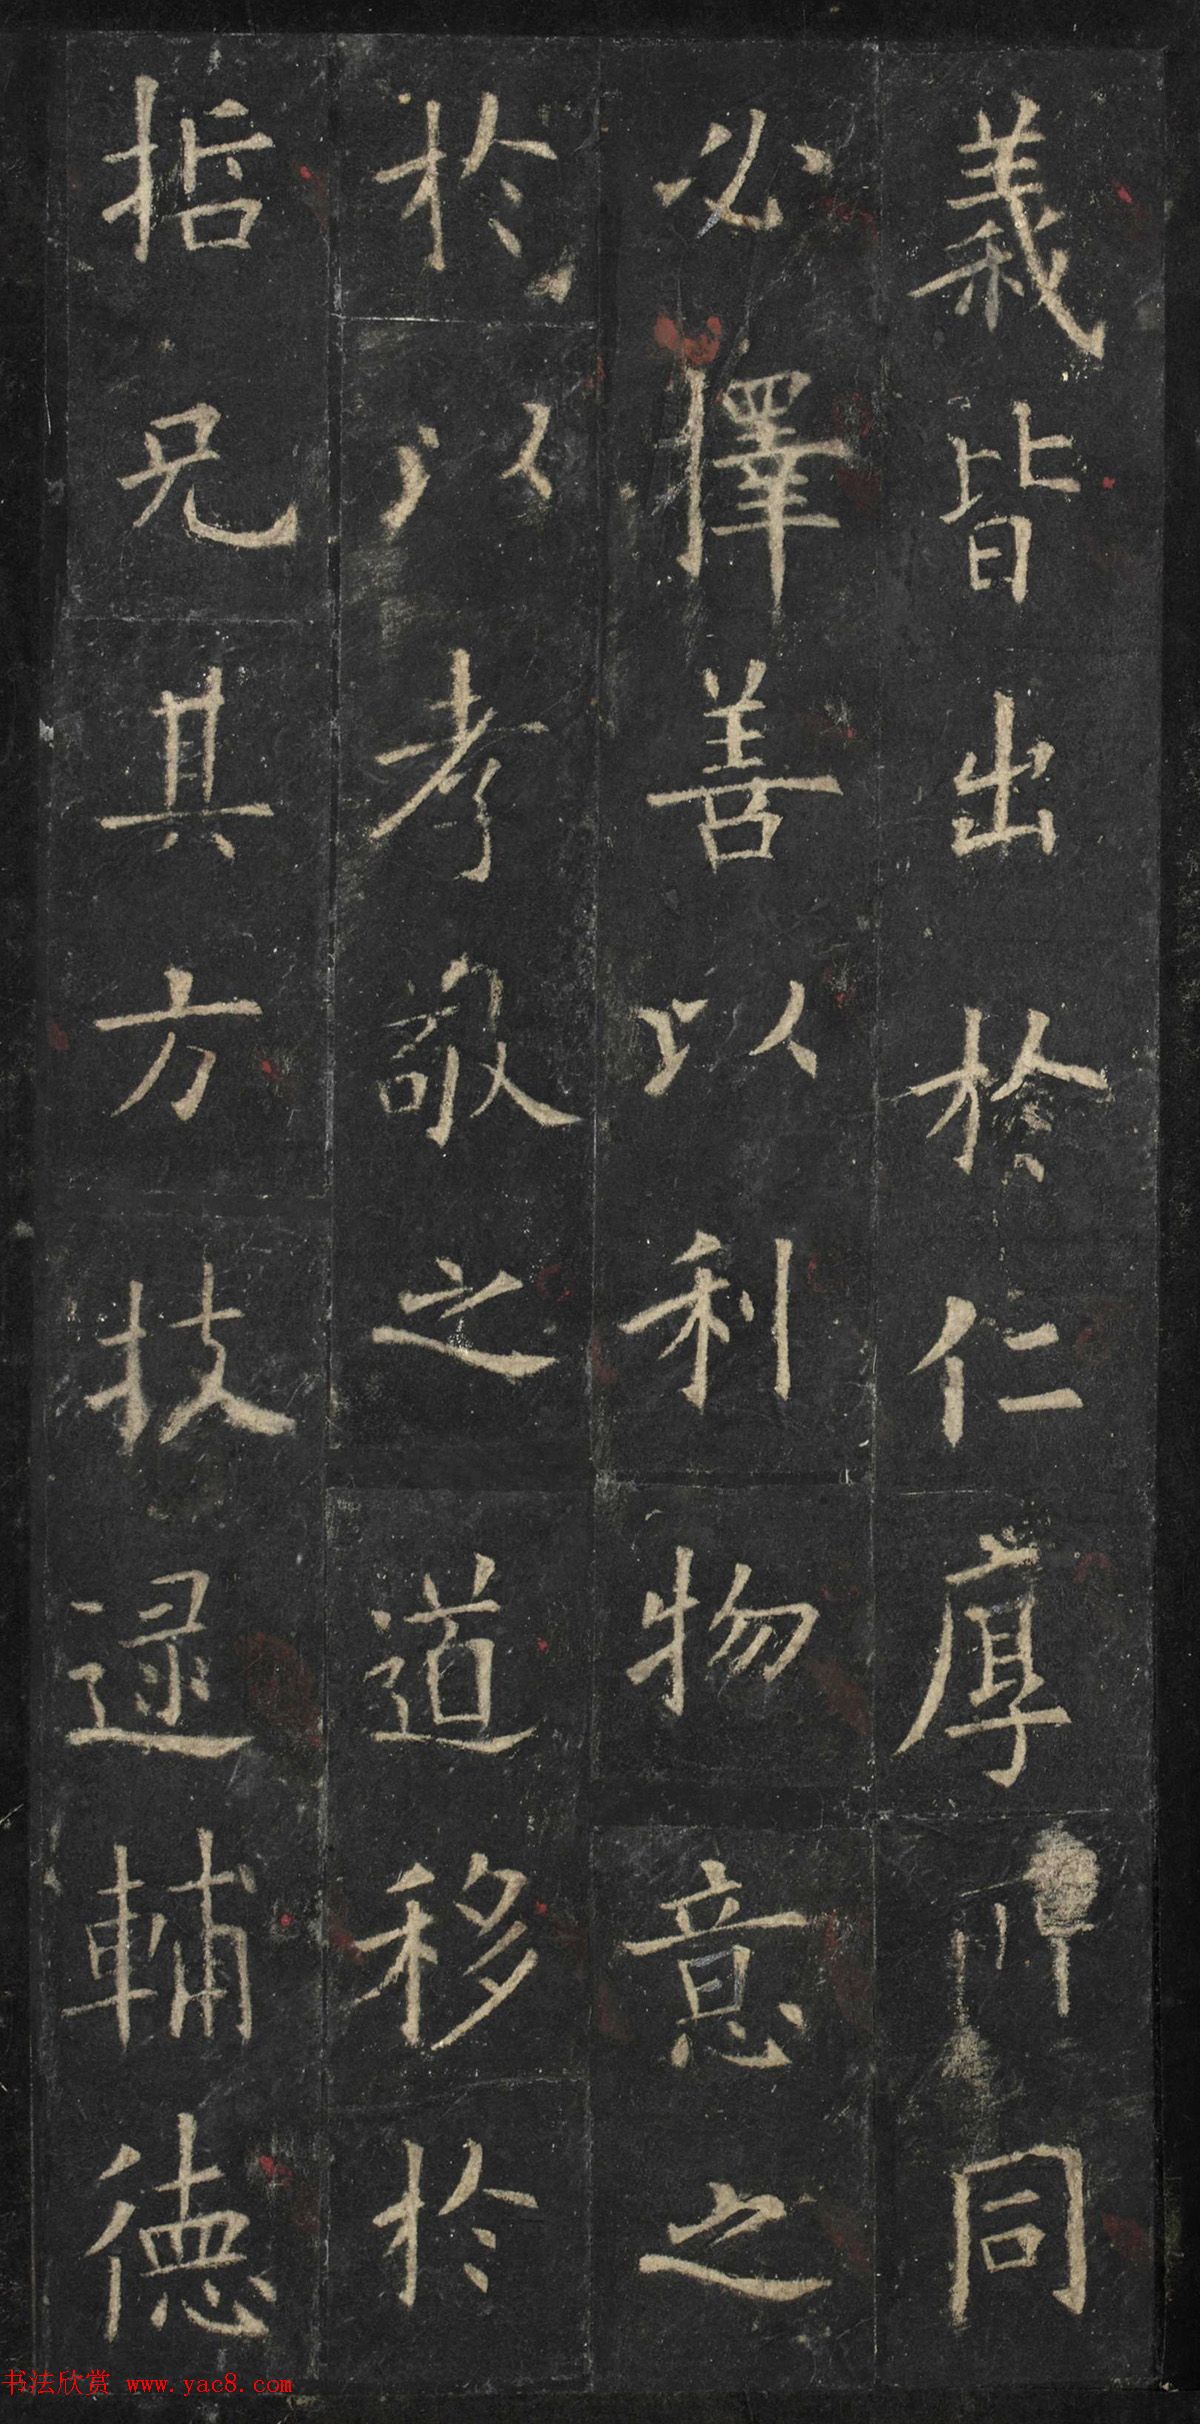 義皆出於仁厚所同
必擇善以利物意之
於以孝敬之道移於
哲兄其方技逯輔德
书法欣赏 www.yac8.com